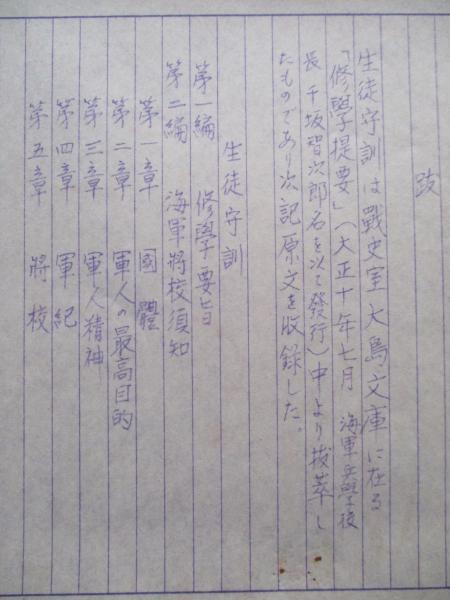 跋
生徒守訓は戰史室大島文庫に在る
「修學提要」(大正十年七月 海軍兵學校
長 千坂智次郎名を以て發行)中より抜萃し
たものであり次記原文を收録した。
生徒守訓
第一編 修學要旨
第二編 海軍將校須知
第一章 國體
第二章 軍人の最高目的
第三章 軍人精神
第四章 軍紀
第五章 將校